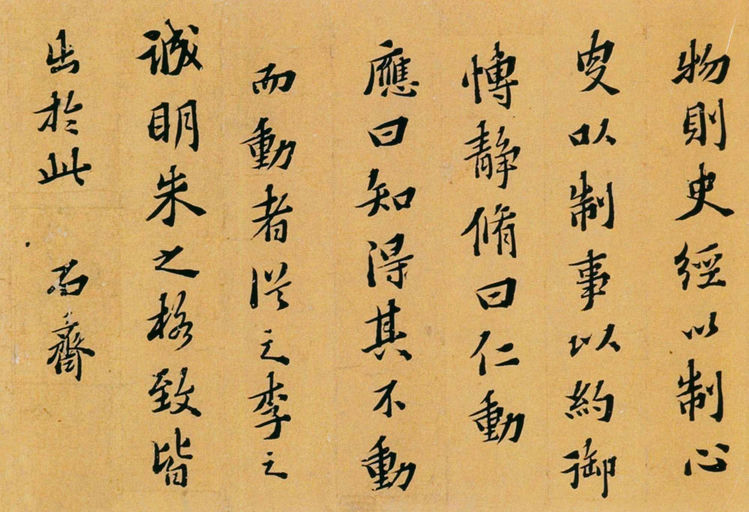 物則史經以制心
史以制事以約御
愽靜脩曰仁動
應曰知得其不動
而動者從之李之
誠明朱之格致皆
出於此 齋